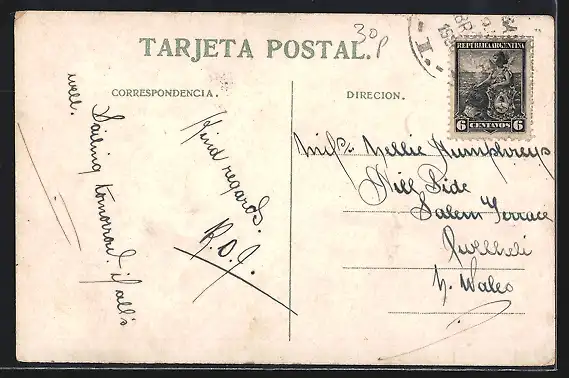 TARJETA POSTAL.
30p
CORRESPONDENCIA.
DIRECION.
REPUBLICA ARGENTINA
6 CENTAVOS 6
Kind regards.
R.O.J.
Sailing tomorrow if all's
well.
Miss Nellie Humphreys
Hill Side
Salem Terrace
Pwllheli
N. Wales